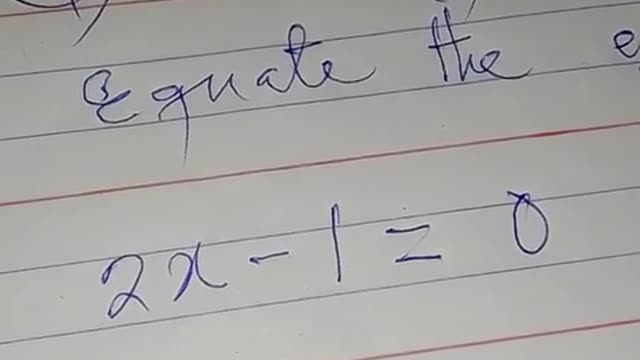 Equate the
2x - 1 = 0